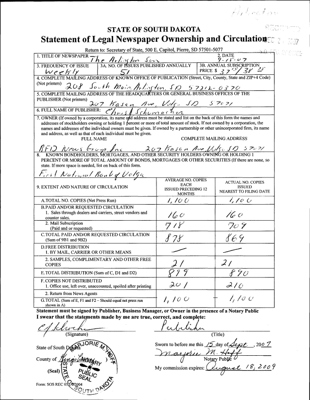 STATE OF SOUTH DAKOTA
Statement of Legal Newspaper Ownership and Circulation
Return to: Secretary of State, 500 E. Capitol, Pierre, SD 57501-5077
1. TITLE OF NEWSPAPER The Arlington Sun
2. DATE 9-15-07
3. FREQUENCY OF ISSUE Weekly
3A. NO. OF ISSUES PUBLISHED ANNUALLY 51
3B. ANNUAL SUBSCRIPTION PRICE $
4. COMPLETE MAILING ADDRESS OF KNOWN OFFICE OF PUBLICATION (Street, City, County, State and ZIP+4 Code)
(Not printers) 208 South Main Arlington SD 57212-0370
5. COMPLETE MAILING ADDRESS OF THE HEADQUARTERS OR GENERAL BUSINESS OFFICES OF THE
PUBLISHER (Not printer) 207 Kasan Ave, Volga SD 57071
6. FULL NAME OF PUBLISHER: Chuck
7. OWNER (If owned by a corporation, its name and address must be stated and list on the back of this form the names and
addresses of stockholders owning or holding 1 percent or more of total amount of stock. If not owned by a corporation, the
names and addresses of the individual owners must be given. If owned by a partnership or other unincorporated firm, its name
and address, as well as that of each individual must be given.
FULL NAME COMPLETE MAILING ADDRESS
RFD News Group Inc. 207 Kasan Ave Volga, SD 57071
8. KNOWN BONDHOLDERS, MORTGAGES, AND OTHER SECURITY HOLDERS OWNING OR HOLDING 1
PERCENT OR MORE OF TOTAL AMOUNT OF BONDS, MORTGAGES OR OTHER SECURITIES (If there are none, so
state. If more space is needed, list on back of this form.
First National Bank of Volga
9. EXTENT AND NATURE OF CIRCULATION
AVERAGE NO. COPIES EACH ISSUED PRECEDING 12 MONTHS
ACTUAL NO. COPIES ISSUED NEAREST TO FILING DATE
A.TOTAL NO. COPIES (Net Press Run) 1,100 1,100
B.PAID AND/OR REQUESTED CIRCULATION
1. Sales through dealers and carriers, street vendors and
counter sales. 160 160
2. Mail Subscription
(Paid and or requested) 718 709
C.TOTAL PAID AND/OR REQUESTED CIRCULATION
(Sum of 9B1 and 9B2) 878 869
D.FREE DISTRIBUTION
1. BY MAIL, CARRIER OR OTHER MEANS
2. SAMPLES, COMPLIMENTARY AND OTHER FREE
COPIES 21 21
E.TOTAL DISTRIBUTION (Sum of C, D1 and D2) 899 890
F.COPIES NOT DISTRIBUTED
1. Office use, left over, unaccounted, spoiled after printing 201 210
2. Return from News Agents
G.TOTAL (Sum of E, F1 and F2 - Should equal net press run
shown in A) 1,100 1,100
Statement must be signed by Publisher, Business Manager, or Owner in the presence of a Notary Public
I swear that the statements made by me are true, correct, and complete:
Publisher
(Signature) (Title)
State of South Dakota
Sworn to before me this 15 day of Sept, 2007
County of
Marjorie M
Notary Public
(Seal)
NOTARY PUBLIC SEAL
SOUTH DAKOTA
My commission expires: August 18, 2009